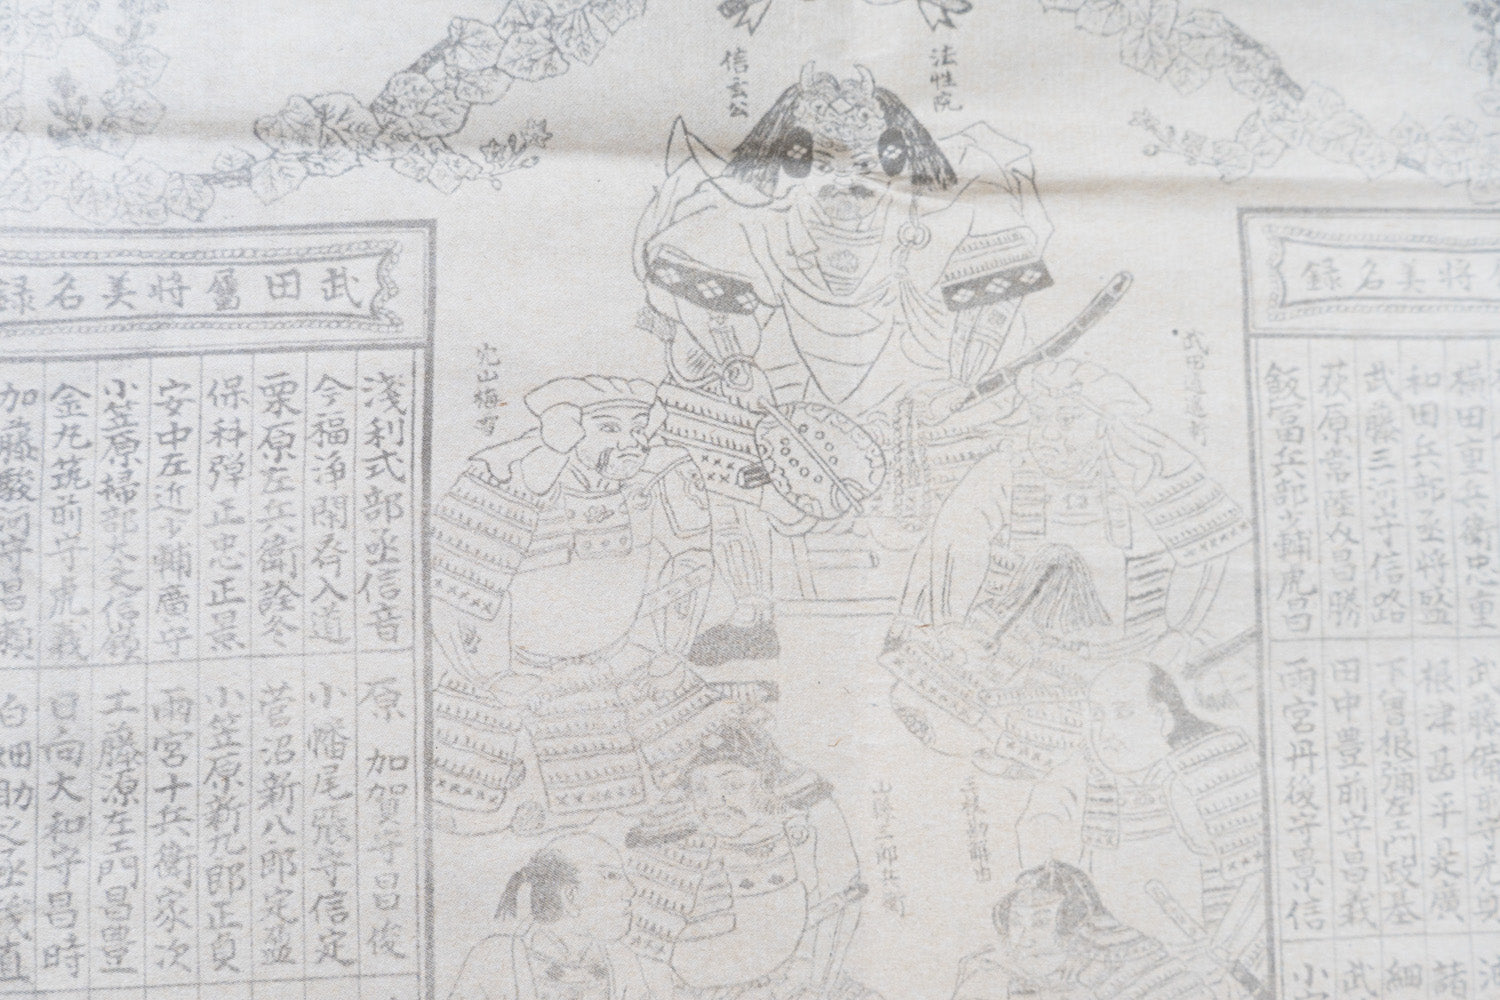 法性院
信玄公
將美名録
横田重兵衛忠重
和田兵部丞將盛
武藤三河守信路
荻原常陸介昌勝
飯冨兵部少輔虎昌
武藤備前守光
根津甚平是廣
下曽根彌左エ門政基
田中豊前守昌義
雨宮丹後守景信
諸
細
武
小
武田
穴山梅雪
山縣三郎兵衛
武田屬將美名録
淺利式部丞信音
今福浄閑斎入道
栗原左兵衛詮冬
保科弾正忠正景
安中左近少輔廣守
小笠原掃部大夫信嶺
金丸筑前守虎義
加藤駿河守昌頼
原 加賀守昌俊
小幡尾張守信定
菅沼新八郎定盈
小笠原新九郎正貞
雨宮十兵衛家次
工藤源左エ門昌豊
日向大和守昌時
白畑助之丞